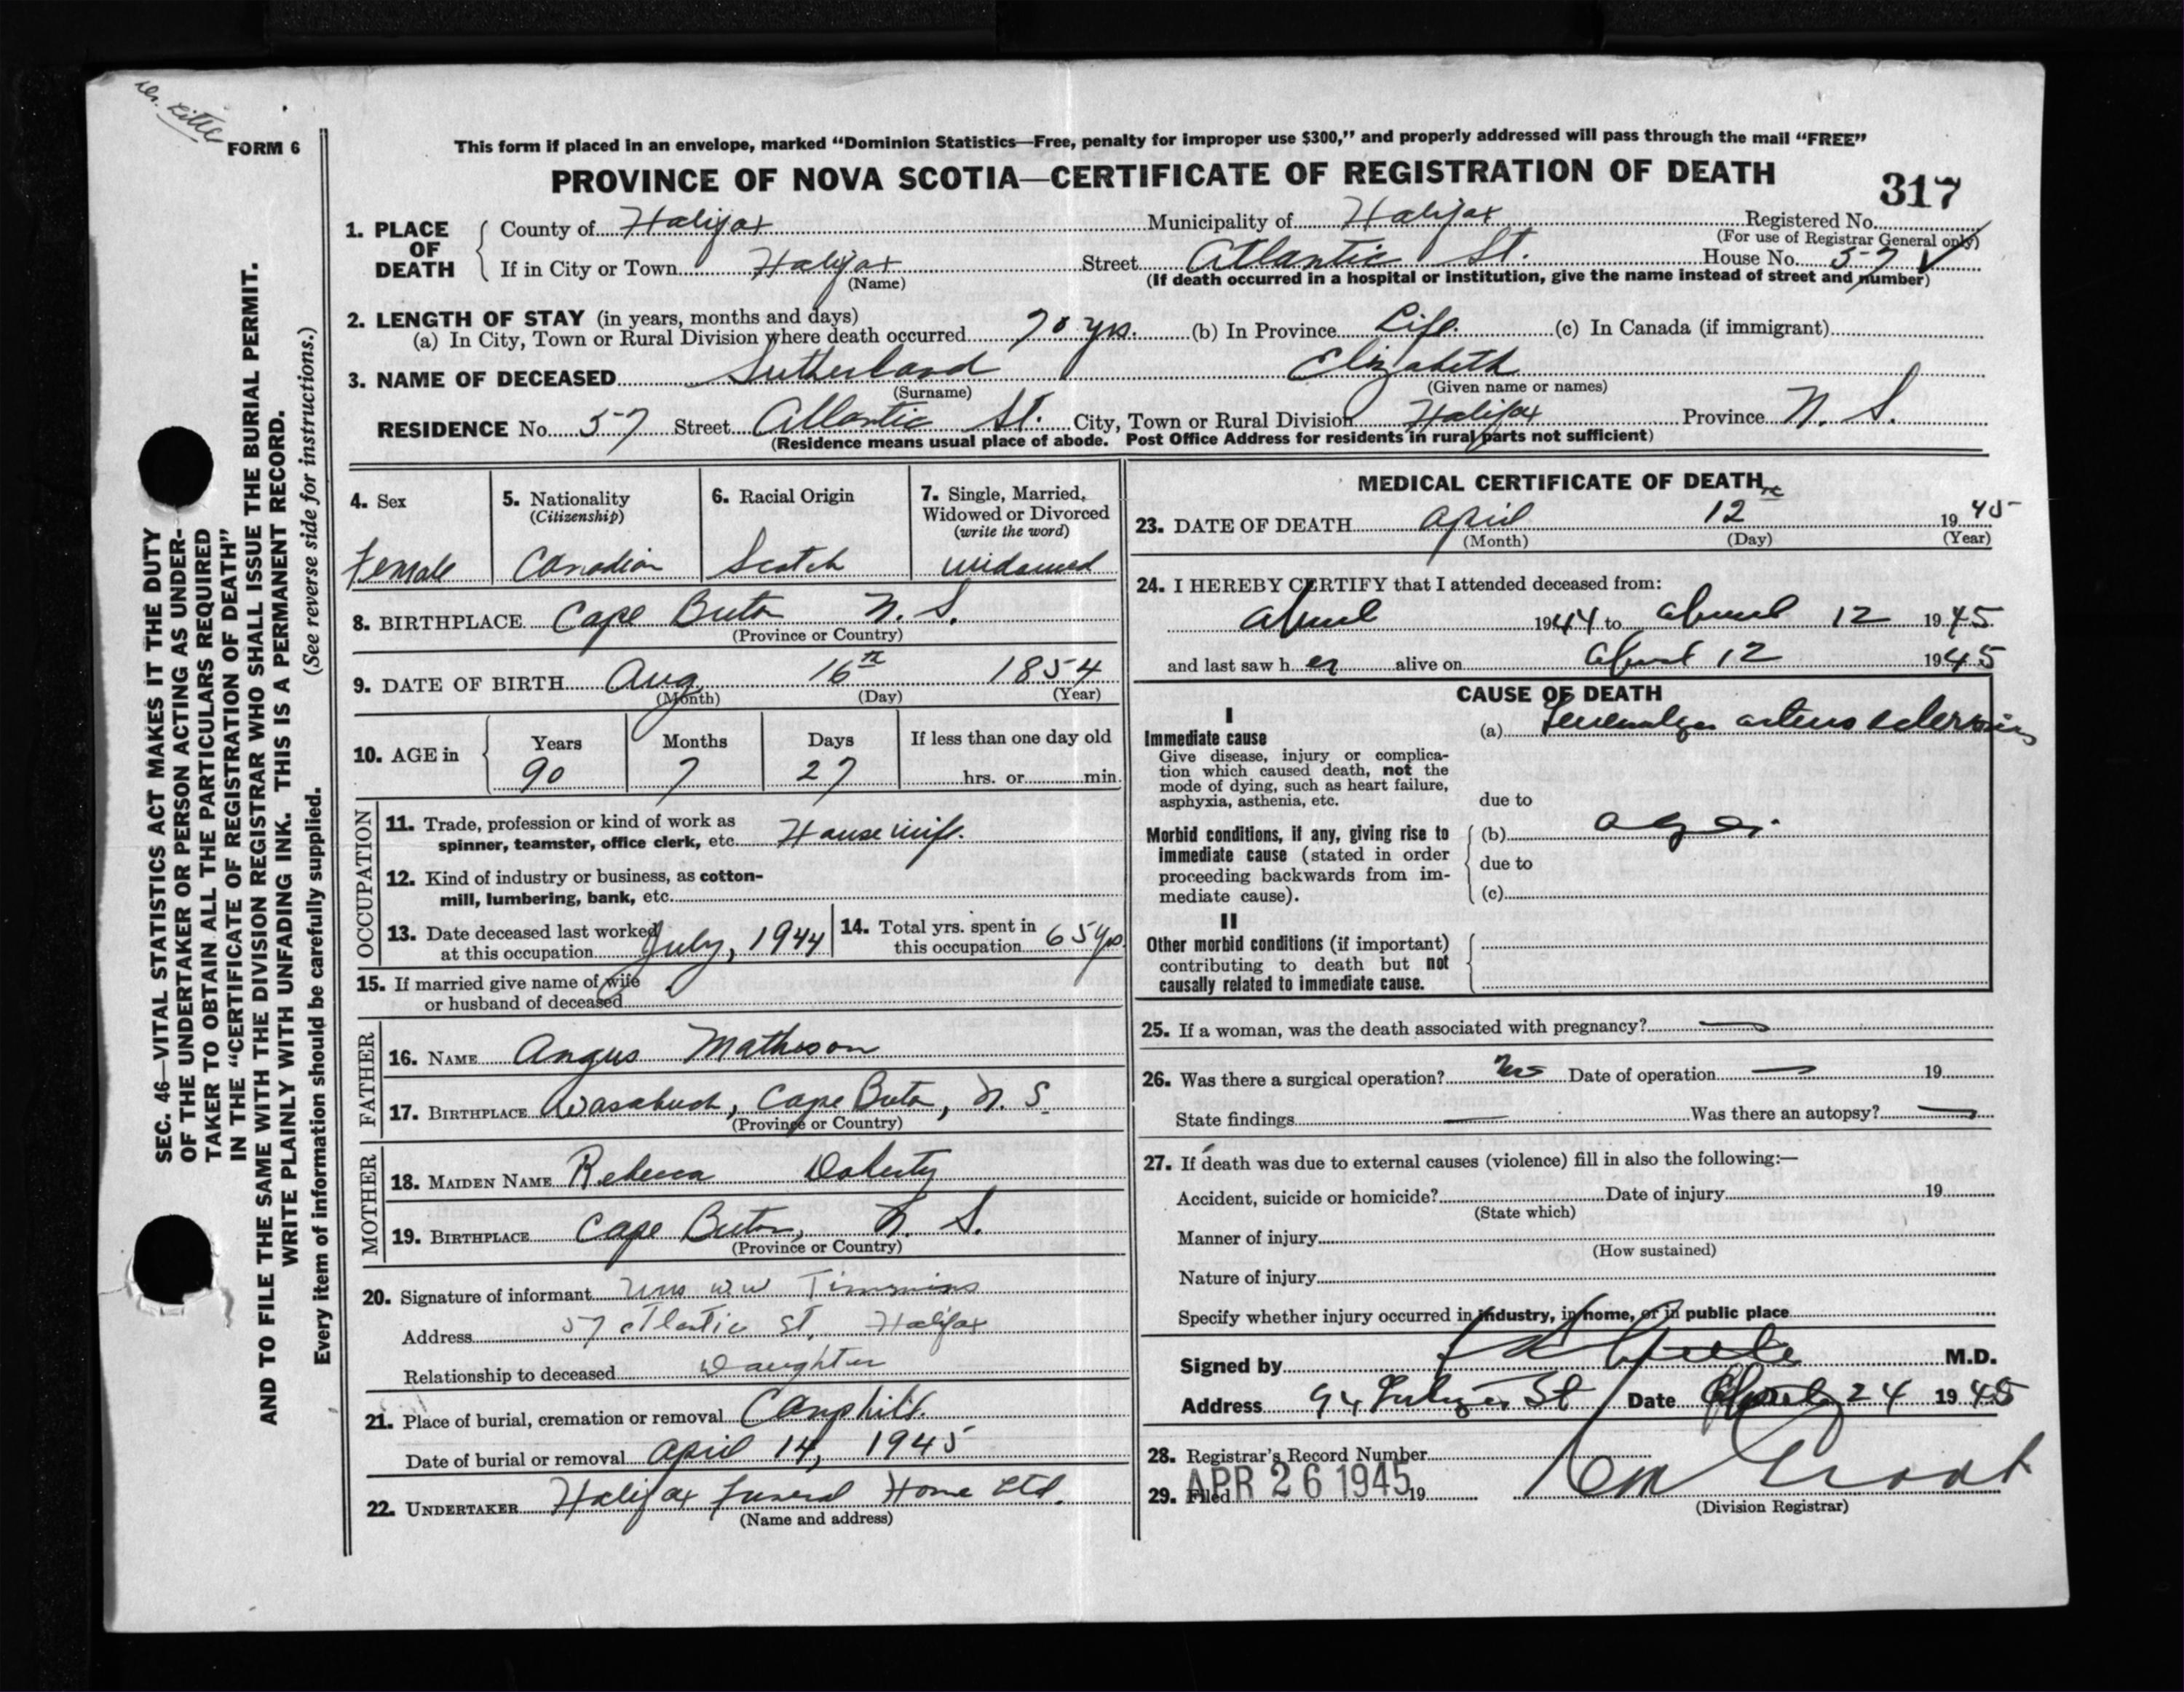 Dr. Little
FORM 6
This form if placed in an envelope, marked “Dominion Statistics—Free, penalty for improper use $300,” and properly addressed will pass through the mail “FREE”
PROVINCE OF NOVA SCOTIA—CERTIFICATE OF REGISTRATION OF DEATH
317
1. PLACE OF DEATH { County of Halifax Municipality of Halifax Registered No.
(For use of Registrar General only)
If in City or Town Halifax Street Atlantic St. House No. 57 ✓
(Name) (If death occurred in a hospital or institution, give the name instead of street and number)
2. LENGTH OF STAY (in years, months and days)
(a) In City, Town or Rural Division where death occurred 70 yrs. (b) In Province Life. (c) In Canada (if immigrant)
3. NAME OF DECEASED Sutherland Elizabeth
(Surname) (Given name or names)
RESIDENCE No. 57 Street Atlantic St. City, Town or Rural Division Halifax Province N. S.
(Residence means usual place of abode. Post Office Address for residents in rural parts not sufficient)
4. Sex 5. Nationality (Citizenship) 6. Racial Origin 7. Single, Married, Widowed or Divorced (write the word)
Female Canadian Scotch Widowed
8. BIRTHPLACE Cape Breton N. S.
(Province or Country)
9. DATE OF BIRTH Aug. 16th 1854
(Month) (Day) (Year)
10. AGE in { Years Months Days If less than one day old
90 7 27 hrs. or min.
OCCUPATION
11. Trade, profession or kind of work as
spinner, teamster, office clerk, etc. Housewife.
12. Kind of industry or business, as cotton-
mill, lumbering, bank, etc.
13. Date deceased last worked
at this occupation July, 1944
14. Total yrs. spent in
this occupation 65 yrs.
15. If married give name of wife
or husband of deceased
FATHER
16. NAME Angus Matheson
17. BIRTHPLACE Cape Breton, N. S.
(Province or Country)
MOTHER
18. MAIDEN NAME Rebecca Doherty
19. BIRTHPLACE Cape Breton, N. S.
(Province or Country)
20. Signature of informant Mrs W W Timmins
Address 57 Atlantic St, Halifax
Relationship to deceased Daughter
21. Place of burial, cremation or removal Camphill.
Date of burial or removal April 14, 1945
22. UNDERTAKER Halifax Funeral Home Ltd.
(Name and address)
MEDICAL CERTIFICATE OF DEATH
23. DATE OF DEATH April 12th 1945
(Month) (Day) (Year)
24. I HEREBY CERTIFY that I attended deceased from:
April 1944 to April 12 1945
and last saw her alive on April 12 1945
CAUSE OF DEATH
I
Immediate cause
Give disease, injury or complica-
tion which caused death, not the
mode of dying, such as heart failure,
asphyxia, asthenia, etc.
(a) arterio sclerosis
due to
Morbid conditions, if any, giving rise to
immediate cause (stated in order
proceeding backwards from im-
mediate cause).
(b) age
due to
(c)
II
Other morbid conditions (if important)
contributing to death but not
causally related to immediate cause.
25. If a woman, was the death associated with pregnancy? —
26. Was there a surgical operation? No Date of operation — 19
State findings — Was there an autopsy? —
27. If death was due to external causes (violence) fill in also the following:—
Accident, suicide or homicide? Date of injury 19
(State which)
Manner of injury
(How sustained)
Nature of injury
Specify whether injury occurred in industry, in home, or in public place
Signed by M.D.
Address 94 St Date April 24 1945
28. Registrar's Record Number
29. Filed APR 26 1945 19
(Division Registrar)
SEC. 46—VITAL STATISTICS ACT MAKES IT THE DUTY
OF THE UNDERTAKER OR PERSON ACTING AS UNDER-
TAKER TO OBTAIN ALL THE PARTICULARS REQUIRED
IN THE “CERTIFICATE OF REGISTRATION OF DEATH”
AND TO FILE THE SAME WITH THE DIVISION REGISTRAR WHO SHALL ISSUE THE BURIAL PERMIT.
WRITE PLAINLY WITH UNFADING INK. THIS IS A PERMANENT RECORD.
Every item of information should be carefully supplied. (See reverse side for instructions.)